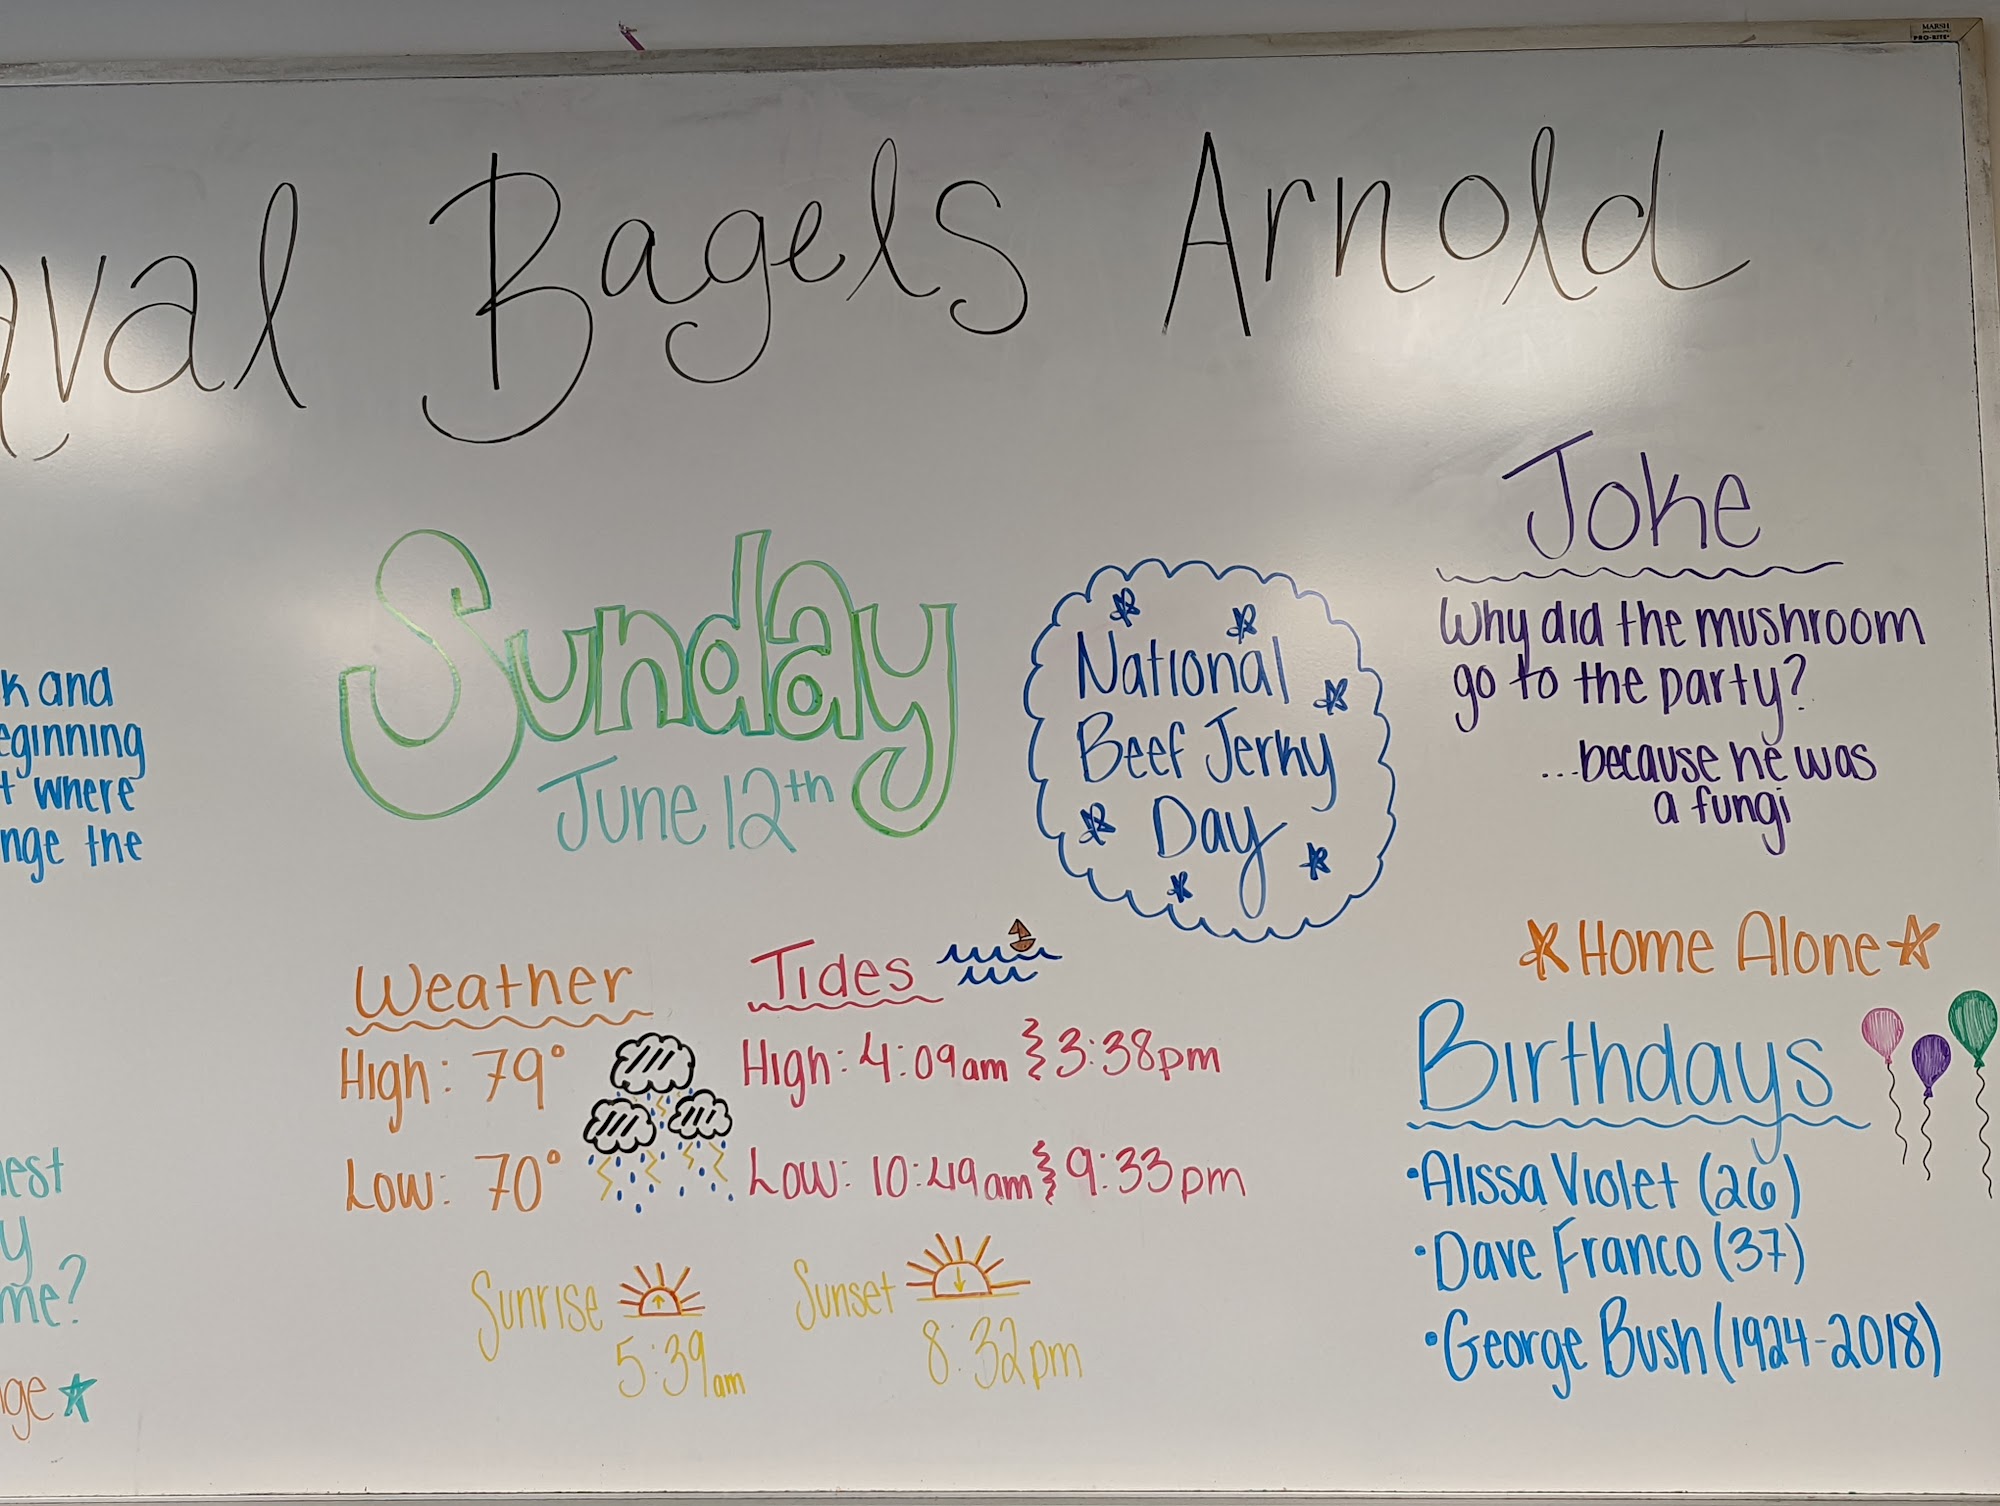 MARSH
PRO-RITE
aval Bagels Arnold
k and
eginning
t where
nge the
nest
y
me?
nge
Sunday
June 12th
National
Beef Jerky
Day
Joke
Why did the mushroom
go to the party?
...because he was
a fungi
Weather
High: 79°
Low: 70°
Tides
High: 4:09am & 3:38pm
Low: 10:49am & 9:33pm
Sunrise
5:39am
Sunset
8:32pm
Home Alone
Birthdays
•Alissa Violet (26)
•Dave Franco (37)
•George Bush (1924-2018)